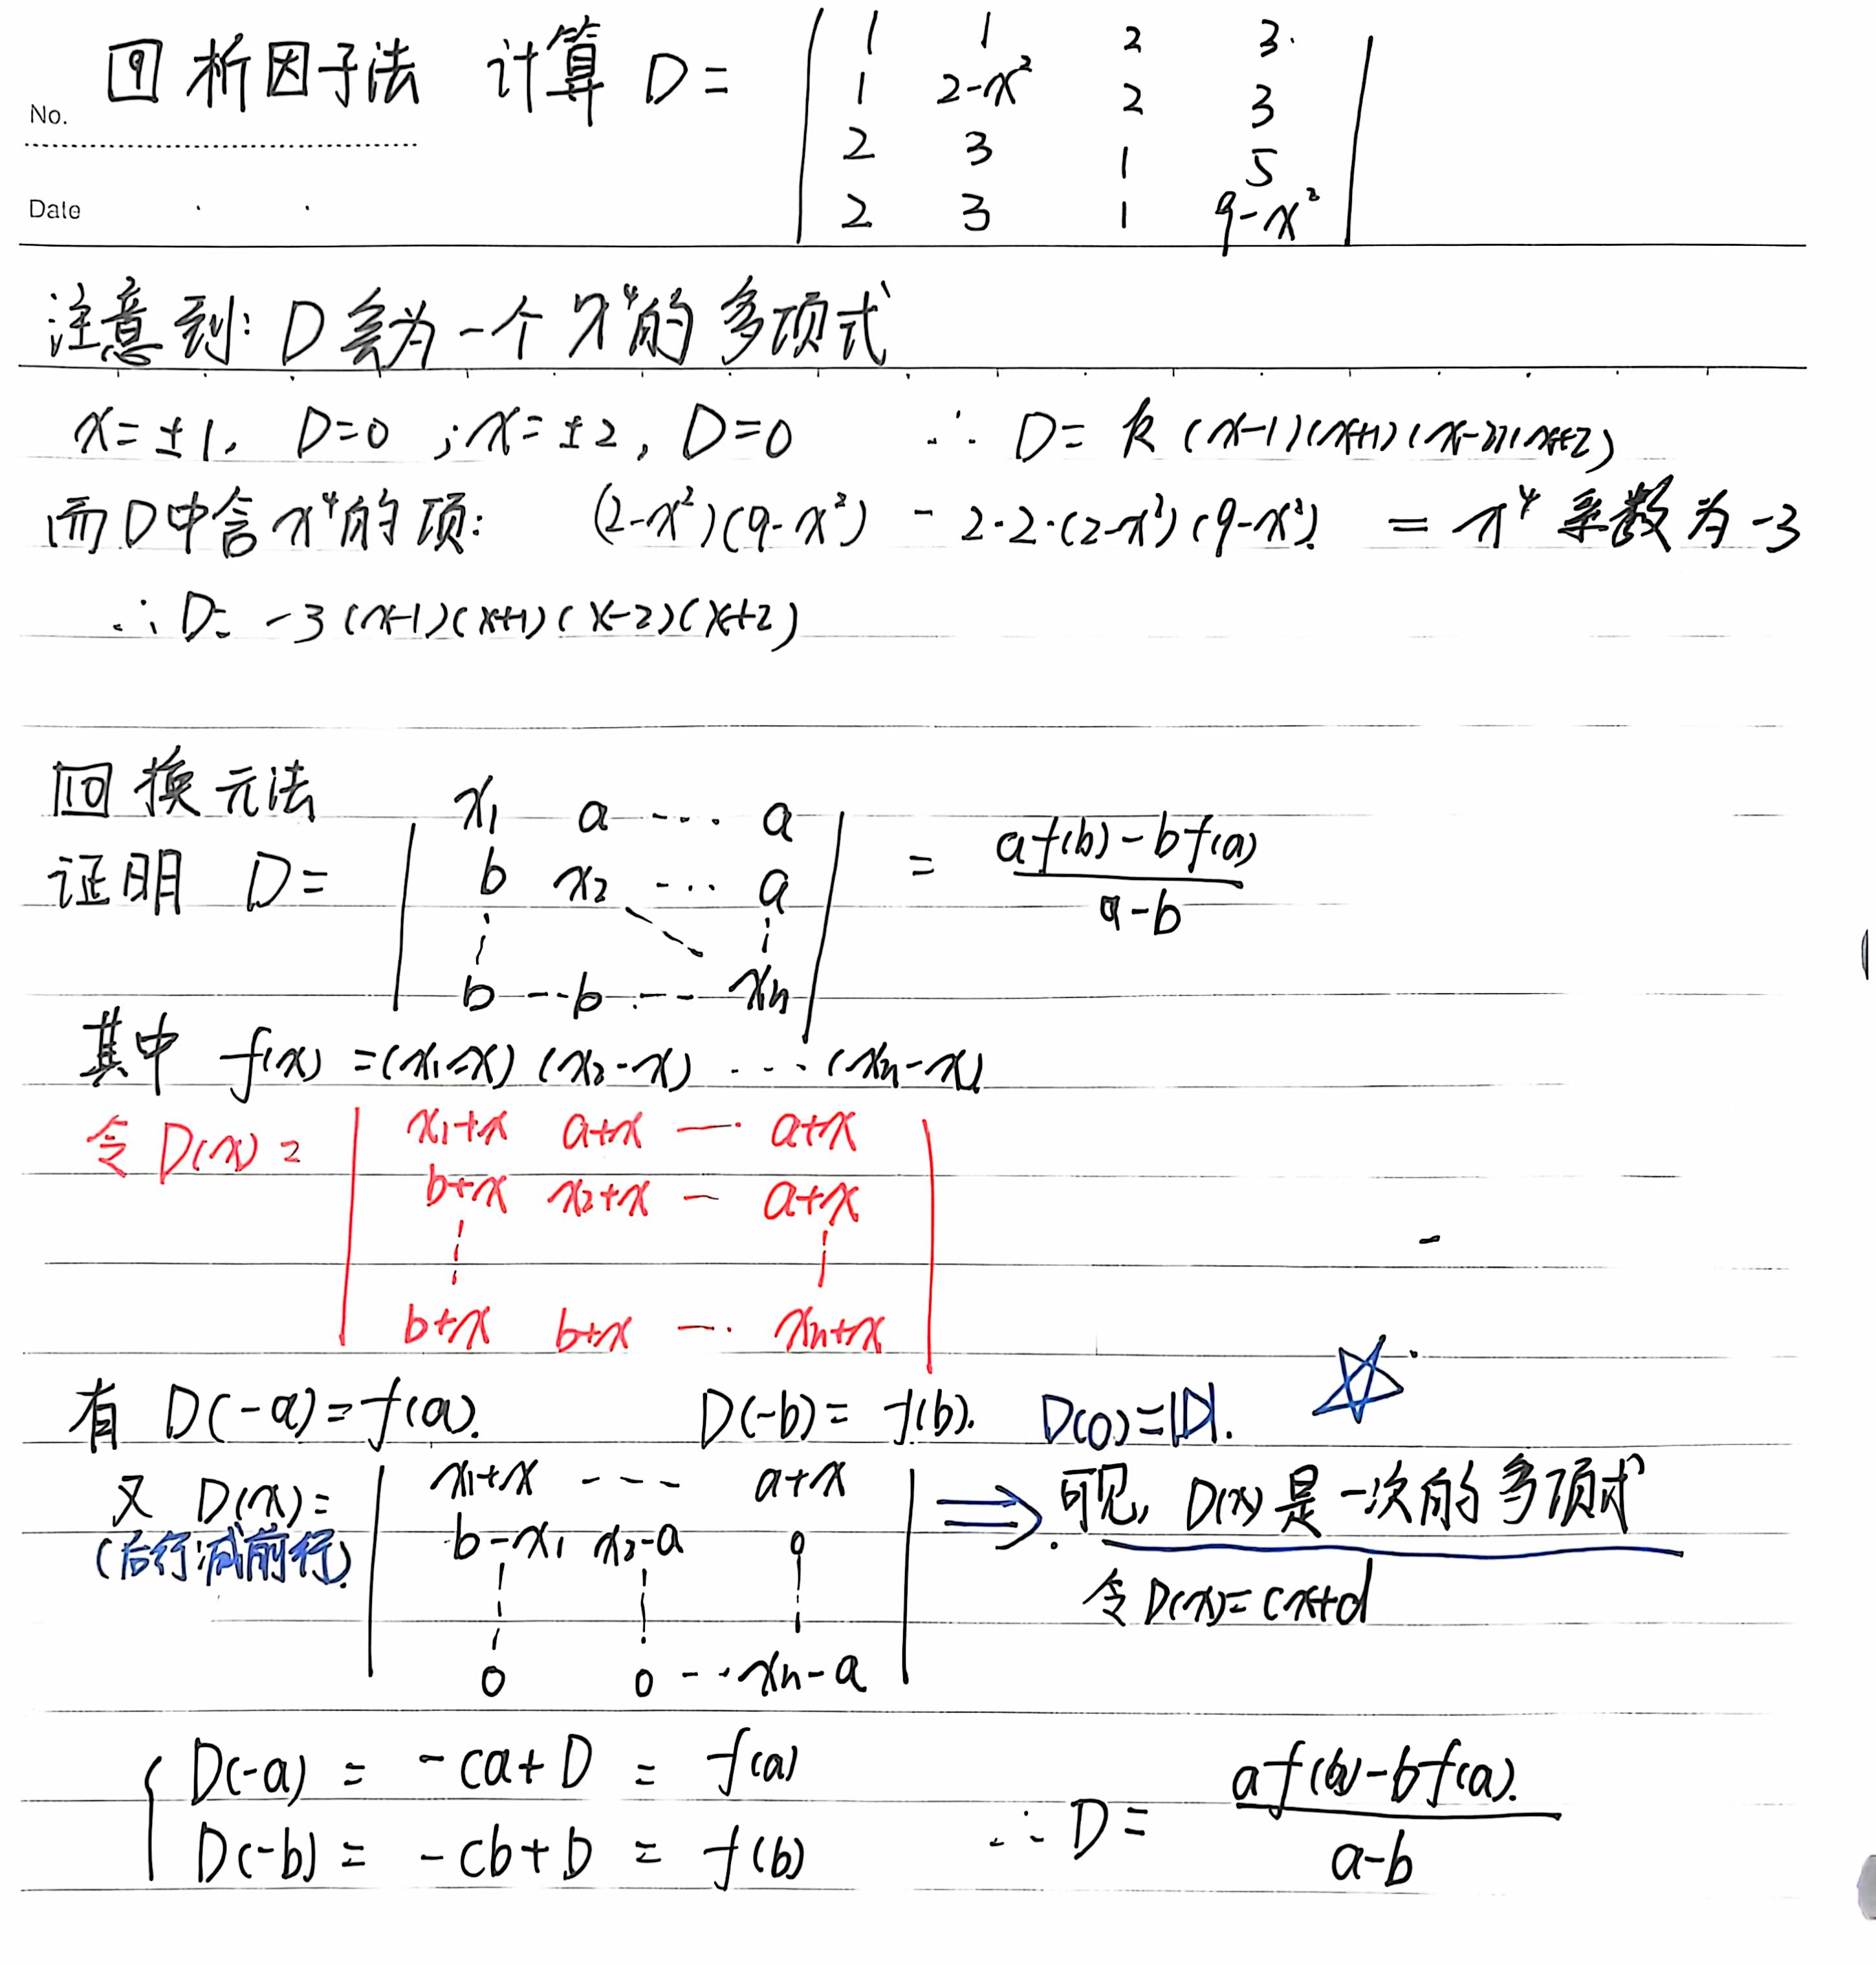 ⑨ 析因子法 计算 D =
| 1 1 2 3 |
| 1 2-x² 2 3 |
| 2 3 1 5 |
| 2 3 1 9-x² |
No.
Date
注意到: D会为一个x⁴的多项式
x=±1, D=0 ; x=±2, D=0 ∴ D= k (x-1)(x+1)(x-2)(x+2)
而D中含x⁴的项: (2-x²)(9-x²) - 2·2·(2-x²)(9-x²) = x⁴系数为-3
∴ D= -3(x-1)(x+1)(x-2)(x+2)
10 换元法
证明 D =
| x₁ a ... a |
| b x₂ ... a |
| ⋮ ⋱ ⋮ |
| b -- b --- xₙ |
= (af(b)-bf(a))/(a-b)
其中 f(x) =(x₁-x)(x₂-x) ...(xₙ-x)
令 D(x) =
| x₁+x a+x ... a+x |
| b+x x₂+x ... a+x |
| ⋮ ⋮ |
| b+x b+x ... xₙ+x |
有 D(-a)=f(a). D(-b)= f(b). D(0)=|D|. ☆
又 D(x)=
(后行减前行)
| x₁+x --- a+x |
| b-x₁ x₂-a 0 |
| ⋮ ⋮ ⋮ |
| 0 0 ... xₙ-a |
⇒ 可见, D(x)是一次的多项式
令D(x)=cx+d
{ D(-a) = -ca+D = f(a)
D(-b) = -cb+D = f(b)
∴ D = (af(b)-bf(a).)/(a-b)